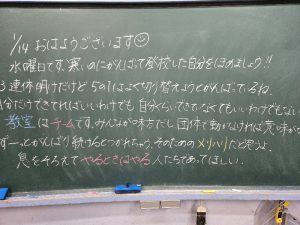 1/14 おはようございます
水曜日です。寒いのにがんばって登校した自分をほめましょう!!
3連休明けだけど 5の1はよく切り替えようとがんばってるね。
分だけできてればいいわけでも 自分くらいできていなくてもいいわけでもない
教室はチームです。みんなが味方だし 団体で動かなければ意味が
ずーっとがんばり続けるとつかれちゃう。そのためのメリハリだと思うよ。
息をそろえて やるときはやる 人たちであってほしい。